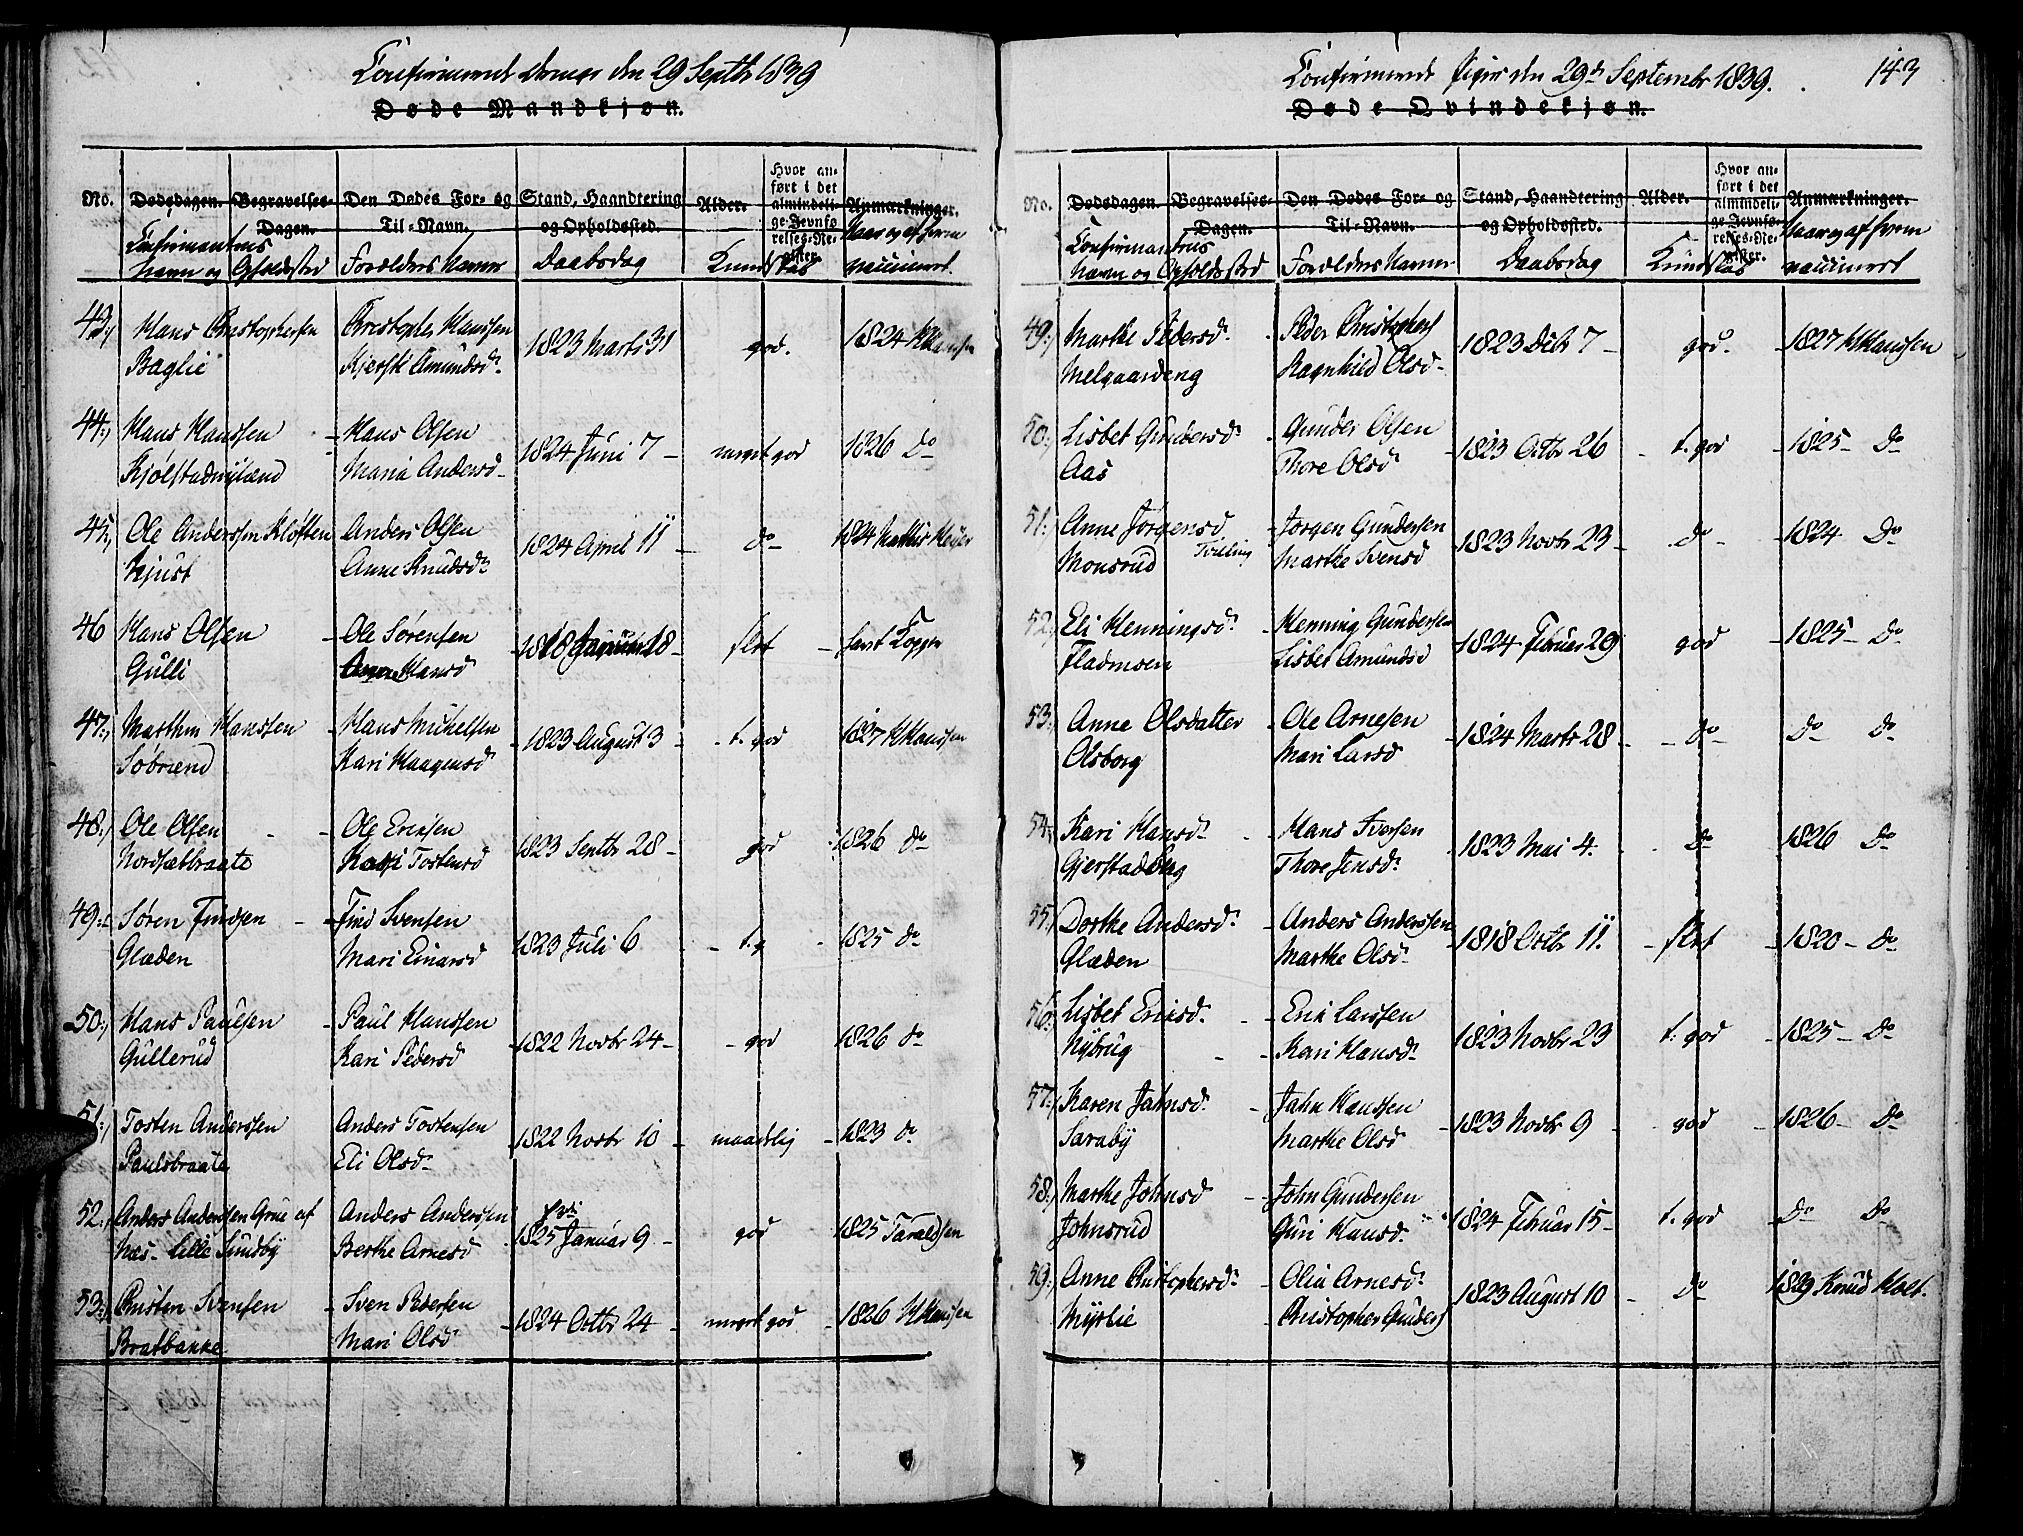 Confirmerede Drenge den 29 Septbr 1839
Døde Mandkjøn.
No. Dødsdagen. Begravelses-Dagen. Den Dødes For- og Til-Navn. Stand, Haandtering og Opholdssted. Alder. Hvor anført i det almindelige Jevnførelses-Register. Anmærkninger.
Confirmantens Navn og Opholdssted Forældrenes Navne Daabsdag Kundskab naar og af hvem vaccineret.
43, Hans Christophersen Christopher Hanssen 1823 Marts 31 god. 1824 HHansen
Baglie Kjersti Amundsd.
44, Hans Hanssen - Hans Olsen 1824 Juni 7 - meget god 1826 Do
Kjølstadnyland Maria Andersd -
45, Ole Anderssen Kløften Anders Olsen 1824 April 11 - do - 1824 Mathis Meyer
Hjust Anne Knudsdr
46 Hans Olsen - Ole Sørensen 1818 Januar 18 - slet - havt Kopper
Gulli Hansd
47, Marthin Hanssen - Hans Michelsen - 1823 August 3 - t. god 1827 HHanssen
Søbrænd Kari Haagensd
48, Ole Olsen - Ole Eriksen 1823 Septbr 28 - god 1826 do
Nordsætbraate Kari Tostensd
49, Søren Findsen - Find Svensen 1823 Juli 6 - t. g - 1825 do
Glæden Mari Einarsd
50, Hans Paulsen - Paul Hanssen - 1822 Novbr 24 - god 1826 do
Gullerud Kari Pedersd
51, Tosten Anderssen Anders Tostensen 1822 Novbr 10 - maadelig - 1823 do
Paulsbraate Eli Olsd -
52, Anders Anderssen Grue af Anders Anderssen 1825 Januar 9 - god 1825 Taraldsen
Næs - Lille Sundby Berthe Arnesd
53, Christen Svensen - Sven Pedersen - 1824 Octbr 24 - meget god - 1826 HHanssen
Bratbakke Mari Olsd
Confirmerede Piger den 29de September 1839. 143
Døde Qvindekjøn.
No. Dødsdagen. Begravelses-Dagen. Den Dødes For- og Til-Navn. Stand, Haandtering og Opholdssted. Alder. Hvor anført i det almindelige Jevnførelses-Register. Anmærkninger.
Confirmandens Navn og Opholdssted Forældrenes Navne Daabsdag Kundskab naar og af hvem vaccineret
49, Marthe Pedersd. - Peder Christophers 1823 Decbr 7 - god. - 1827 HHanssen
Melgaardeng Ragnhild Olsd -
50, Lisbet Gundersd. - Gunder Olsen - 1823 Octbr 26 - t. god - 1825 - Do
Aas Thore Olsd
51, Anne Jørgensd - Jørgen Gundersen 1823 Novbr 23 - do - - 1824 Do
Monsrud Tvilling Marthe Svensd
52, Eli Henningsd. - Henning Gundersen - 1824 Februar 29 god - 1825 - Do
Fladmoen Lisbet Amundsd
53, Anne Olsdatter - Ole Arnesen - 1824 Marts 28 - do - Do Do
Olsborg Mari Larsd
54, Kari Hansd. - Hans Iversen 1823 Mai 4. Do 1826 Do
Gjerstadeng Thore Jensd.
55, Dorthe Andersd. - Anders Anderssen - 1818 Octbr 11. - slet - 1820 - Do
Glæden Marthe Olsd -
56, Lisbet Eriksd. - Erik Larssen 1823 Novbr 23 t. god - 1825 - Do
Nybrug - Kari Hansd.
57, Karen Jahnsd. - Jahn Hanssen - 1823 Novbr 9 - god - 1826 - Do
Saraby Marthe Olsd
58, Marthe Johnsd - John Gundersen 1824 Februar 15 - t. god - Do Do
Johnsrud Guri Hansd.
59, Anne Christophersd. - Olia Arnesd. 1823 August 10 - do 1829 Knud Holt.
Myrlie - Christopher Gunders